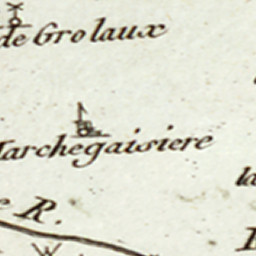 de Grolaux
Marchegaisiere
la
e R.